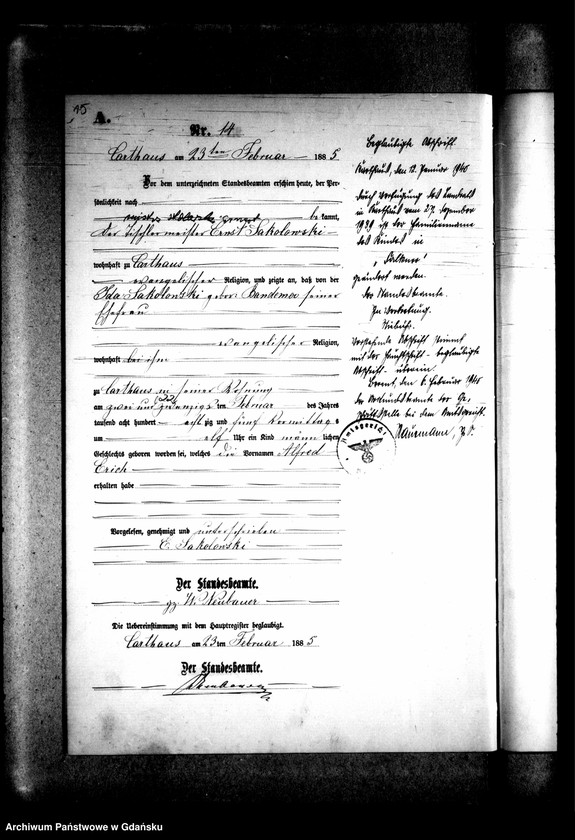 15
A.
Nr. 14
Carthaus am 23ten Februar 1885
Vor dem unterzeichneten Standesbeamten erschien heute, der Per-
sönlichkeit nach
bekannt,
der Tischlermeister Ernst Sakolowski
wohnhaft zu Carthaus
evangelischer Religion, und zeigte an, daß von der
Ida Sakolowski geborne Bandemer seiner
Ehefrau
evangelischer Religion,
wohnhaft bei ihm
zu Carthaus in seiner Wohnung
am zwei und zwanzigsten Februar des Jahres
tausend acht hundert achtzig und fünf Vormittags
um elf Uhr ein Kind männlichen
Geschlechts geboren worden sei, welches die Vornamen Alfred
Erich
erhalten habe
Vorgelesen, genehmigt und unterschrieben
E. Sakolowski
Der Standesbeamte.
gz. W. Neubauer
Die Uebereinstimmung mit dem Hauptregister beglaubigt.
Carthaus am 23ten Februar 1885
Der Standesbeamte.
Neubauer
Beglaubigte Abschrift.
Karthaus, den 12. Januar 1940
Durch Verfügung des Landrats
in Karthaus vom 27. Dezember
1939 ist der Familienname
des Kindes in
"Falkner"
geändert worden.
Der Standesbeamte.
In Vertretung.
Vorstehende Abschrift stimmt
mit der Hauptschrift - beglaubigte
Abschrift - überein.
den 6. Februar 1940
der Geschäftsstelle bei dem Amtsgericht.
Amtsgericht
Archiwum Państwowe w Gdańsku